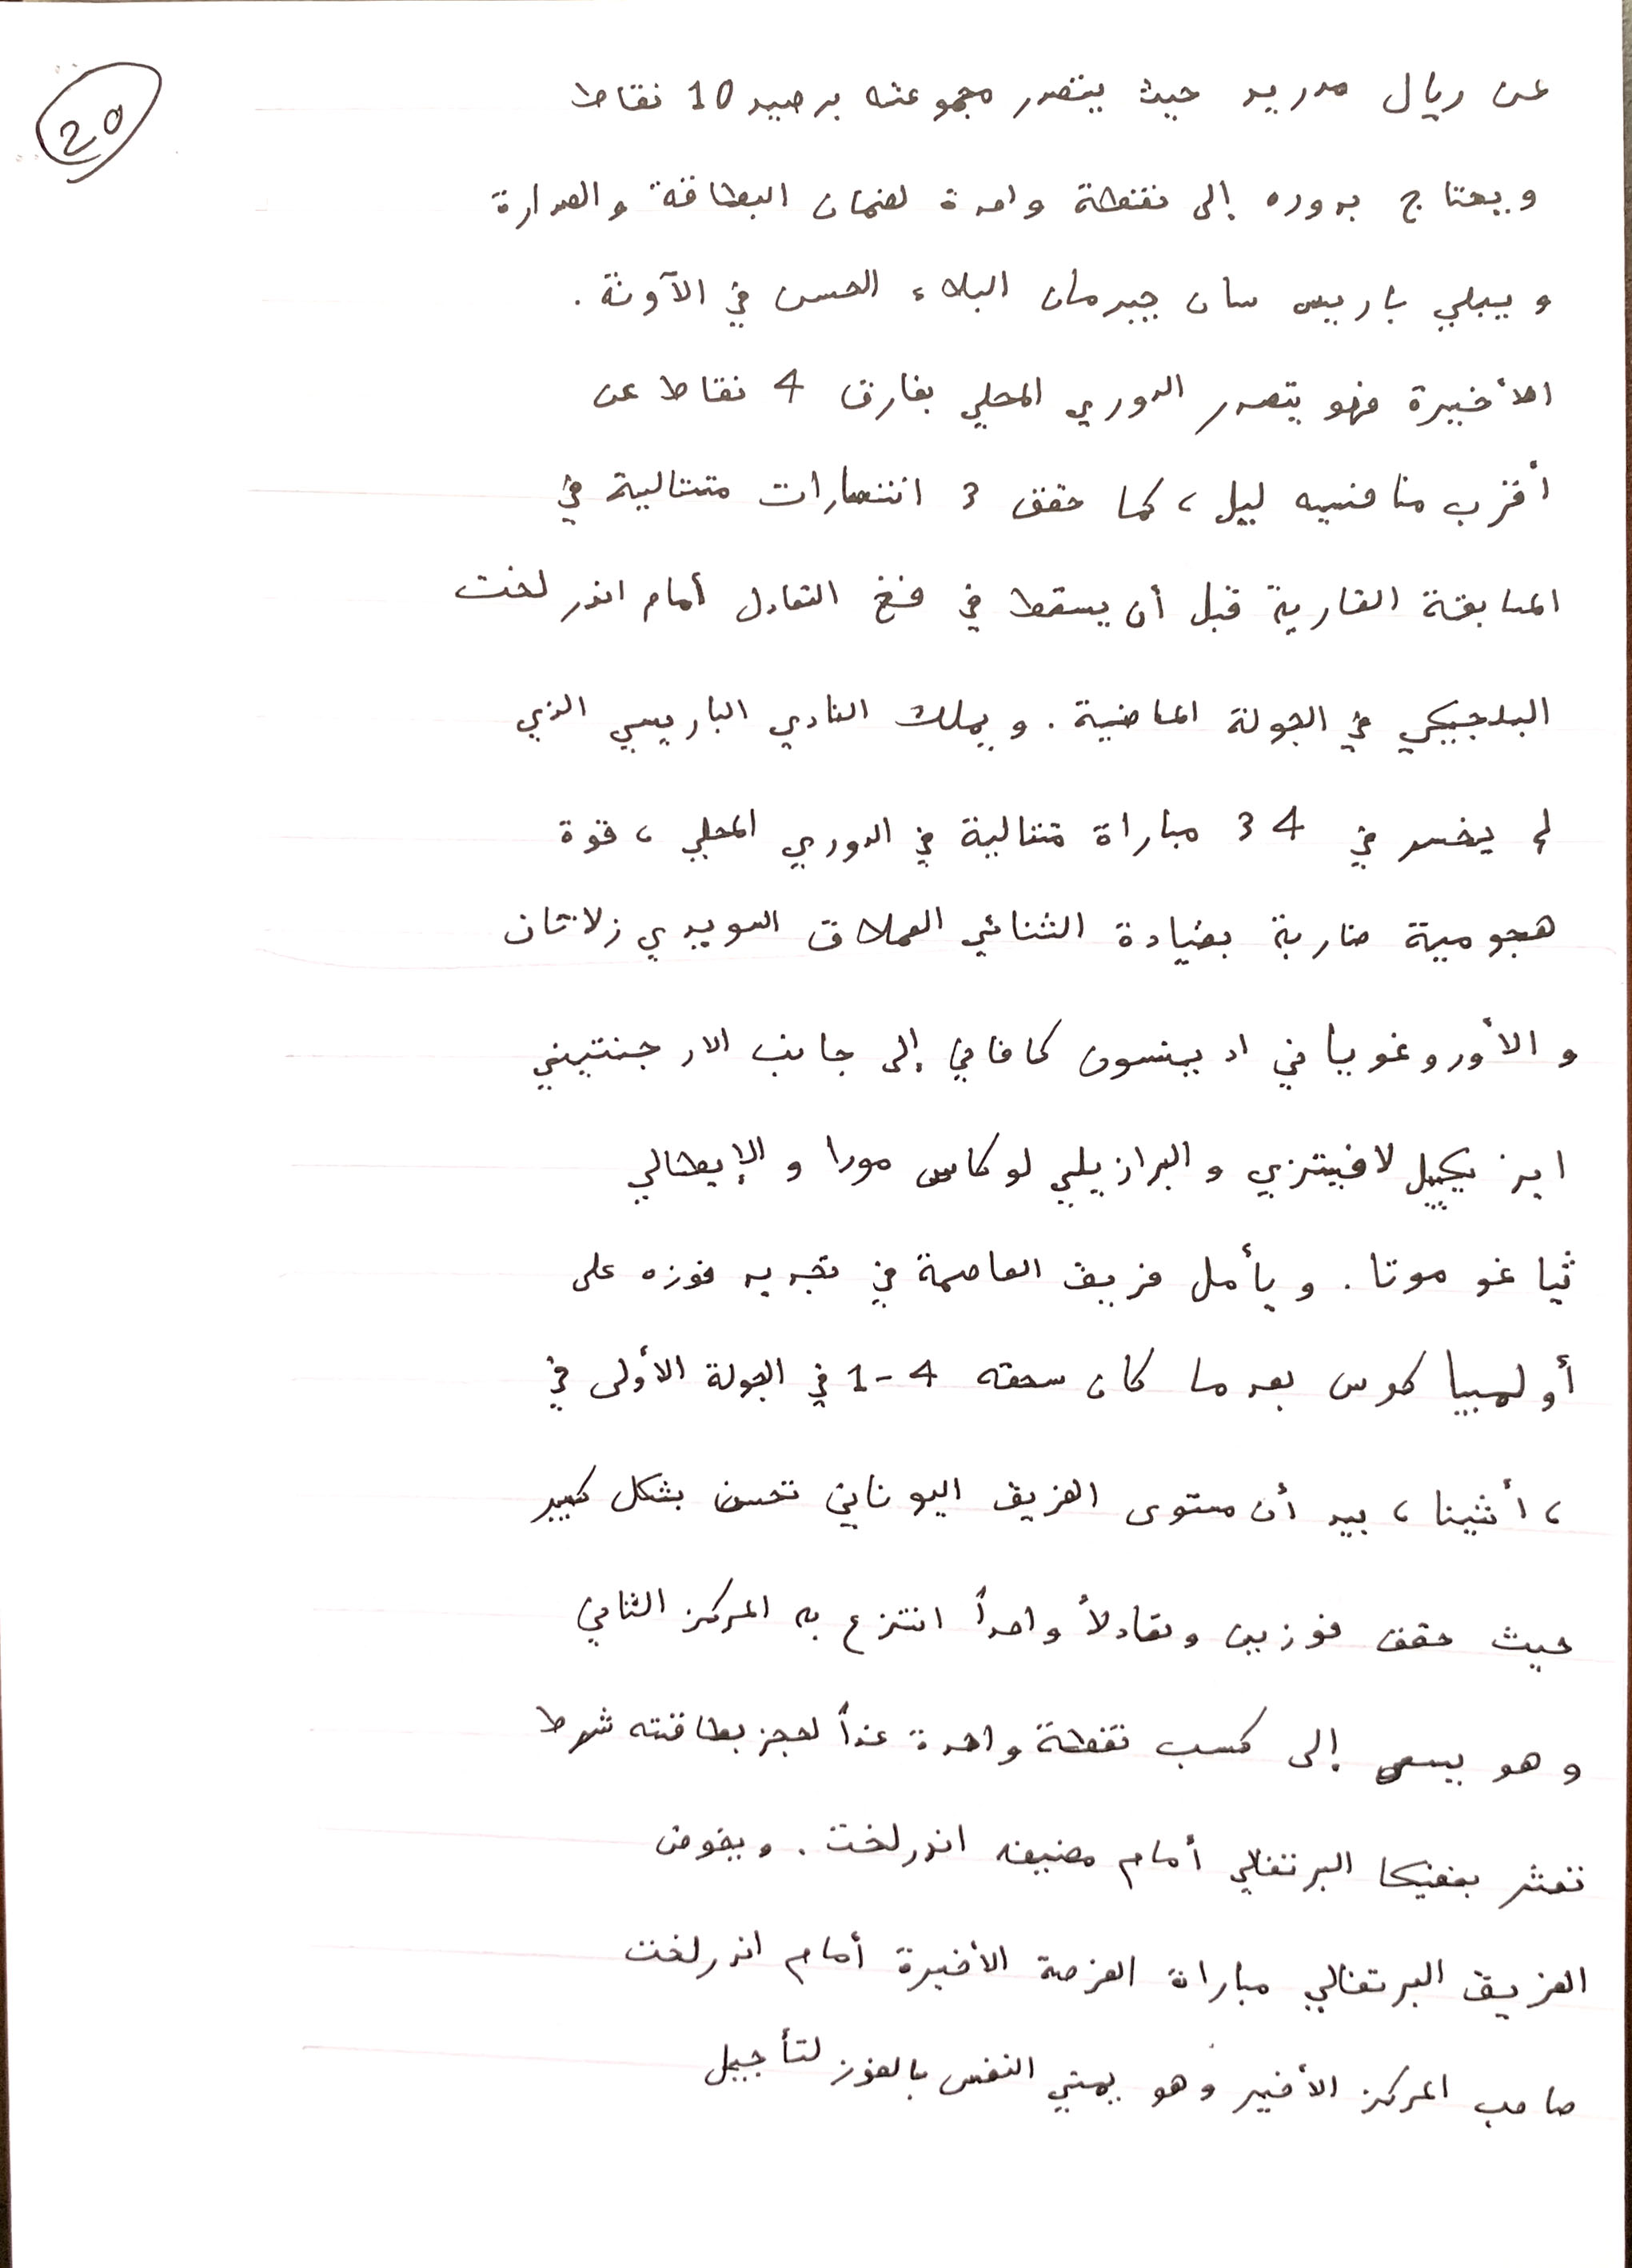 20
عن ريال مدريد حيث يتصدر مجموعته برصيد 10 نقاط
ويحتاج بدوره إلى نقطة واحدة لضمان البطاقة والصدارة
ويبلي باريس سان جيرمان البلاء الحسن في الآونة .
الأخيرة فهو يتصدر الدوري المحلي بفارق 4 نقاط عن
أقرب منافسيه ليل ، كما حقق 3 انتصارات متتالية في
المسابقة القارية قبل أن يسقط في فخ التعادل أمام اندرلخت
البلجيكي في الجولة الماضية . ويملك النادي الباريسي الذي
لم يخسر في 34 مباراة متتالية في الدوري المحلي ، قوة
هجومية ضاربة بقيادة الثنائي العملاق السويدي زلاتان
والأوروغوياني ادينسون كافاني إلى جانب الارجنتيني
ايزيكييل لافيتزي والبرازيلي لوكاس مورا والإيطالي
ثياغو موتا . ويأمل فريق العاصمة في تجديد فوزه على
أولمبياكوس بعدما كان سحقه 4-1 في الجولة الأولى في
، أثينا ، بيد أن مستوى الفريق اليوناني تحسن بشكل كبير
حيث حقق فوزين وتعادلاً واحداً انتزع به المركز الثاني
وهو يسعى إلى كسب نقطة واحدة غداً لحجز بطاقته شرط
تعثر بنفيكا البرتغالي أمام مضيفه اندرلخت . ويخوض
الفريق البرتغالي مباراة الفرصة الأخيرة أمام اندرلخت
صاحب المركز الأخير وهو يمني النفس بالفوز لتأجيل